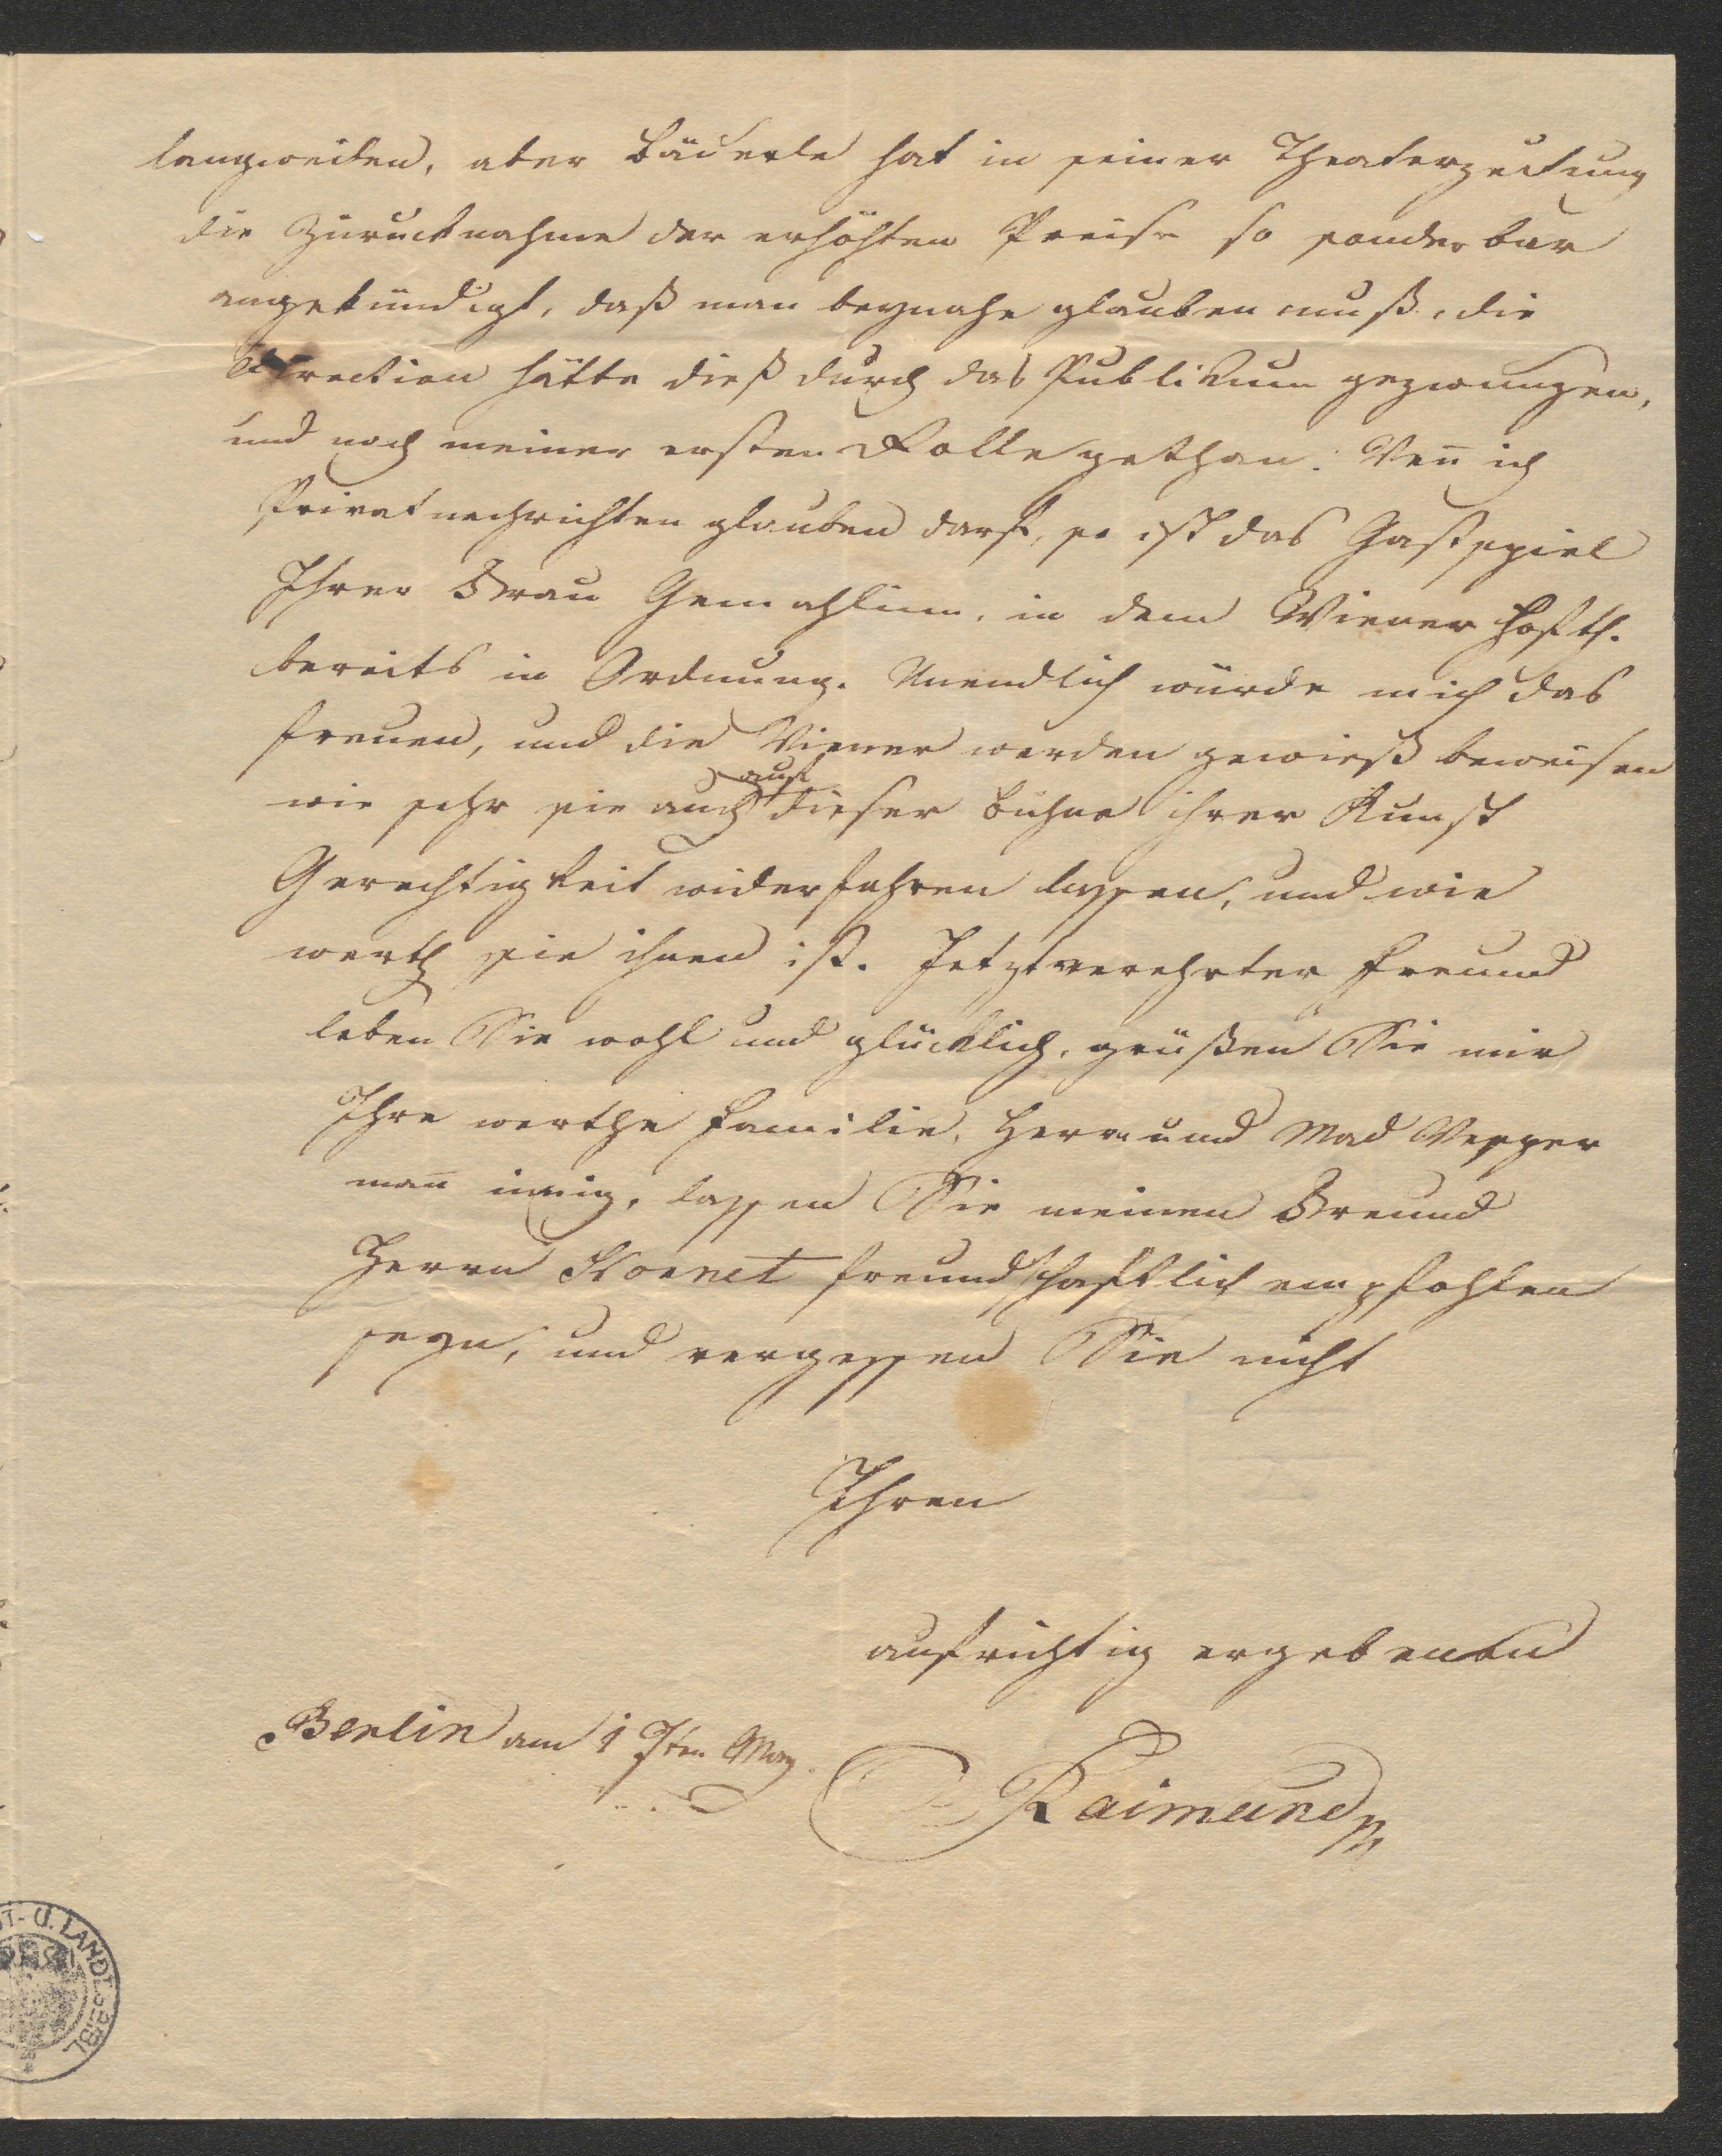 langweilen, aber Bäuerle hat in seiner Theaterzeitung
die Zurücknahme der erhöhten Preise so sonderbar
angekündigt, daß man beynahe glauben muß, die
Direction hätte dieß durch das Publikum gezwungen,
und nach meiner ersten Rolle gethan. Weñ ich
Privatnachrichten glauben darf, so ist das Gastspiel
Ihrer Frau Gemahlinn, in dem Wiener Hofth.
bereits in Ordnung. Unendlich würde mich das
freuen, und die Wiener werden gewieß beweisen
wie sehr sie auch auf dieser Bühne ihrer Kunst
Gerechtigkeit widerfahren lassen, und wie
werth sie ihnen ist. Jetzt verehrter Freund
leben Sie wohl und glücklich, grüßen Sie mir
Ihre werthe Familie, Herrn und Mad
mañ innig, lassen Sie meinen Freund
Herrn Kornet freundschaftlich empfohlen
seyn, und vergessen Sie nicht
Ihren
aufrichtig ergebenen
Berlin am May.
Raimund
U. LANDESBIBL